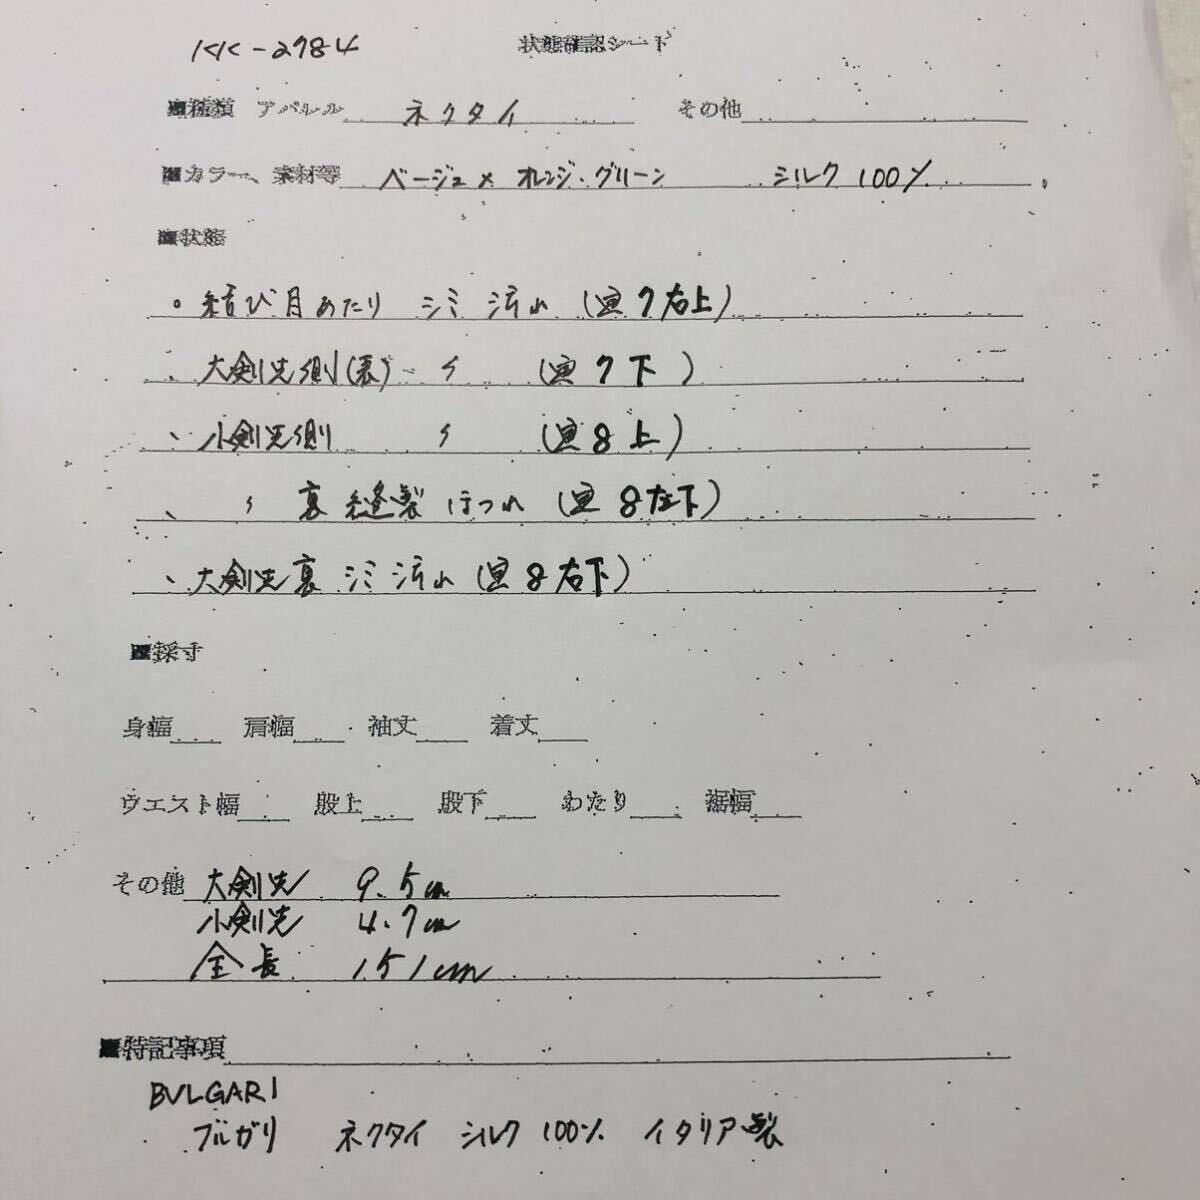 KK-2784 状態確認シート
■種類 アパレル ネクタイ その他
■カラー、素材等 ベージュ×オレンジ・グリーン シルク100%
■状態
・結び目あたり シミ 汚れ (画7右上)
・大剣先側(表) 〃 (画7下)
・小剣先側 〃 (画8上)
・〃 裏 縫製ほつれ (画8左下)
・大剣先裏 シミ汚れ (画8右下)
■採寸
身幅 肩幅 袖丈 着丈
ウエスト幅 股上 股下 わたり 裾幅
その他 大剣先 9.5cm
小剣先 4.7cm
全長 151cm
■特記事項
BVLGARI
ブルガリ ネクタイ シルク100% イタリア製